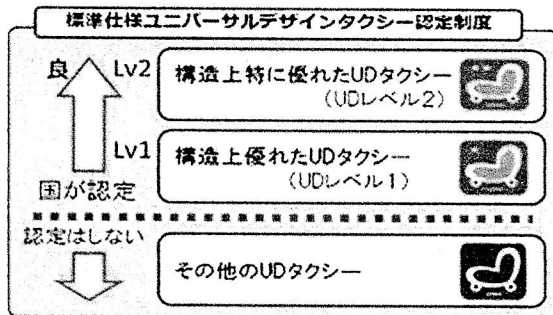 標準仕様ユニバーサルデザインタクシー認定制度
良
Lv2
構造上特に優れたUDタクシー
(UDレベル2)
Lv1
構造上優れたUDタクシー
(UDレベル1)
国が認定
認定はしない
その他のUDタクシー